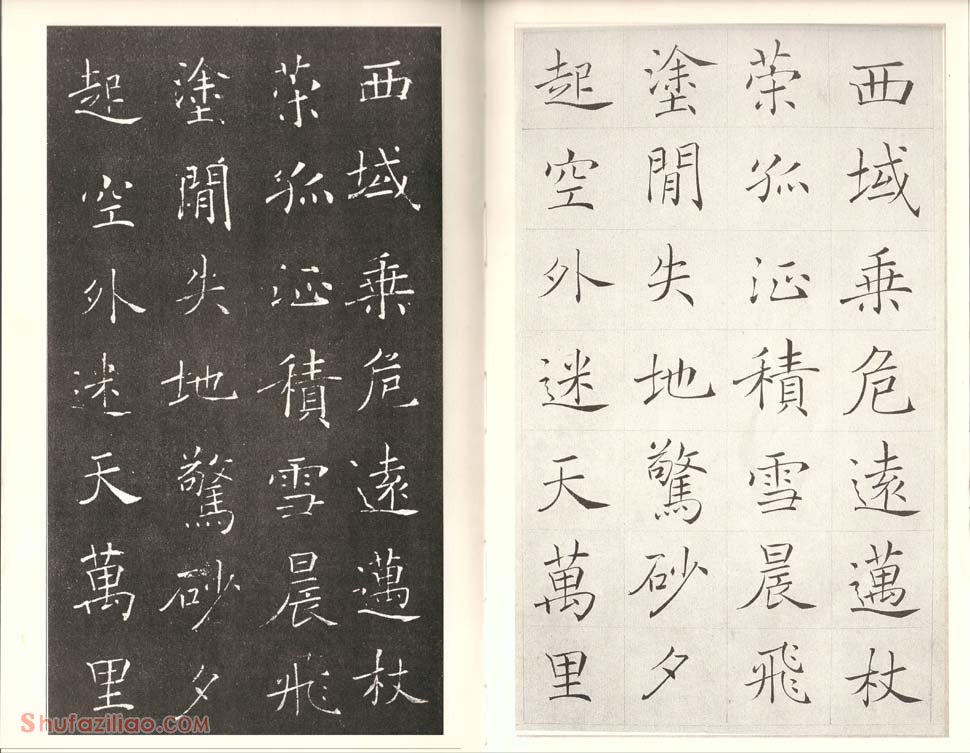 西域乘危遠邁杖
策孤征積雪晨飛
塗閒失地驚砂夕
起空外迷天萬里
西域乘危遠邁杖
策孤征積雪晨飛
塗閒失地驚砂夕
起空外迷天萬里
Shufaziliao.COM